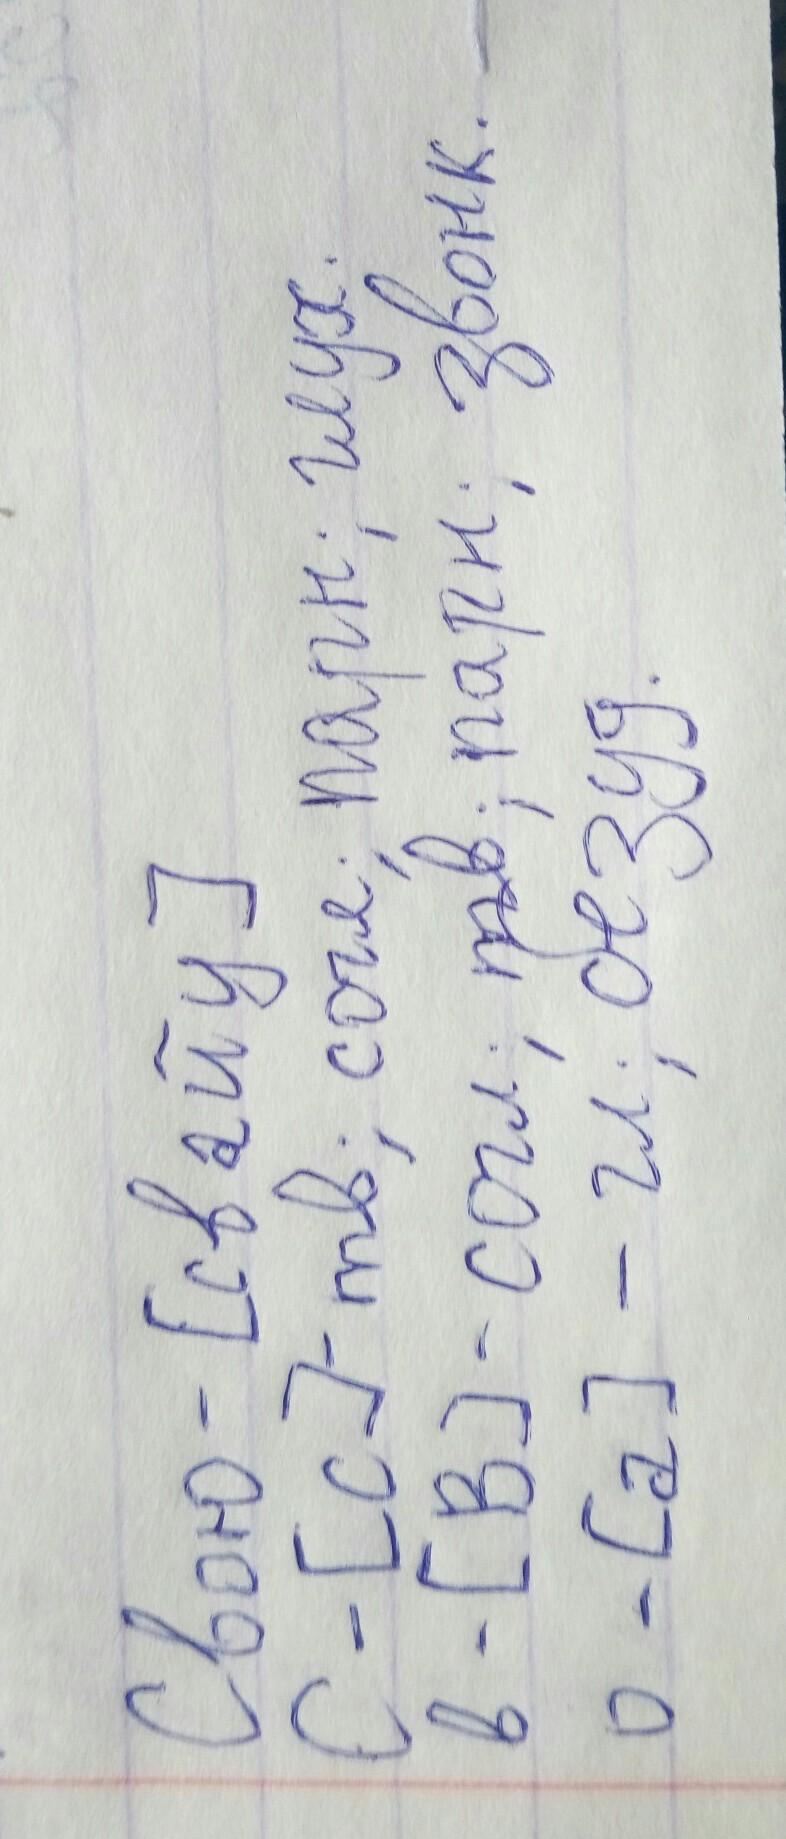 Свою - [свайу]
С - [с] - тв.; согл.; парн.; глух.
в - [в] - согл.; тв.; парн.; звонк.
о - [а] - гл.; безуд.